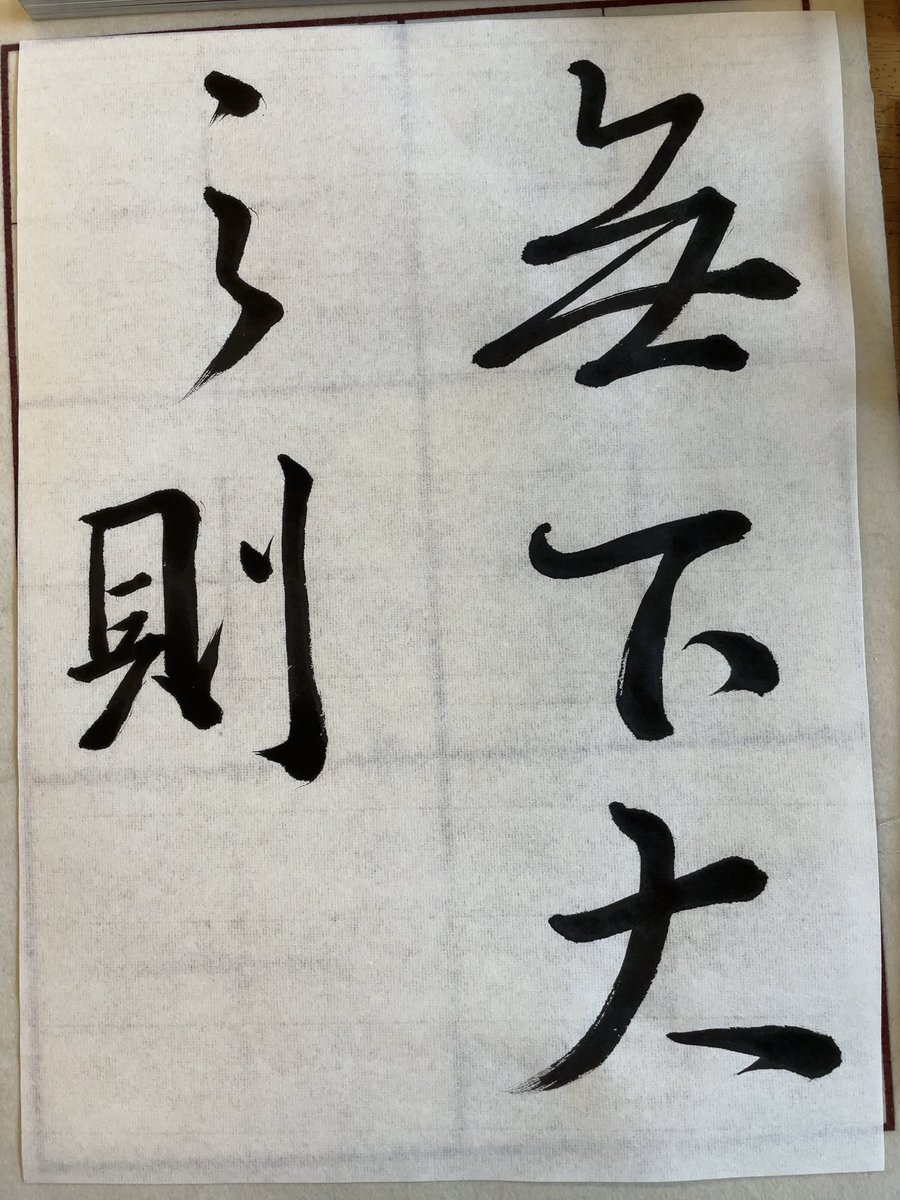 無下大
之則